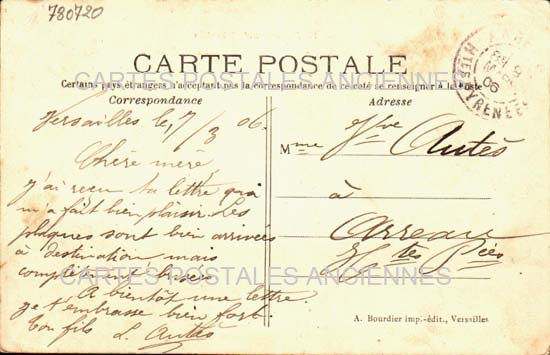 780720
CARTE POSTALE
Certains pays étrangers n'acceptant pas la correspondance de ce côté se renseigner à la Poste
CARTES POSTALES ANCIENNES
Correspondance
Versailles le 7/3 06.
Chère mère
j'ai reçu ta lettre qui
m'a fait bien plaisir. Les
plaques sont bien arrivées
à destination, mais
CARTES POSTALES ANCIENNES
A bientôt une lettre
je t'embrasse bien fort.
ton fils L. Autès
Adresse
Mme Vve Autès
à
Arreau
Htes Pées
HTES PYRENEES
A. Bourdier imp.-édit., Versailles